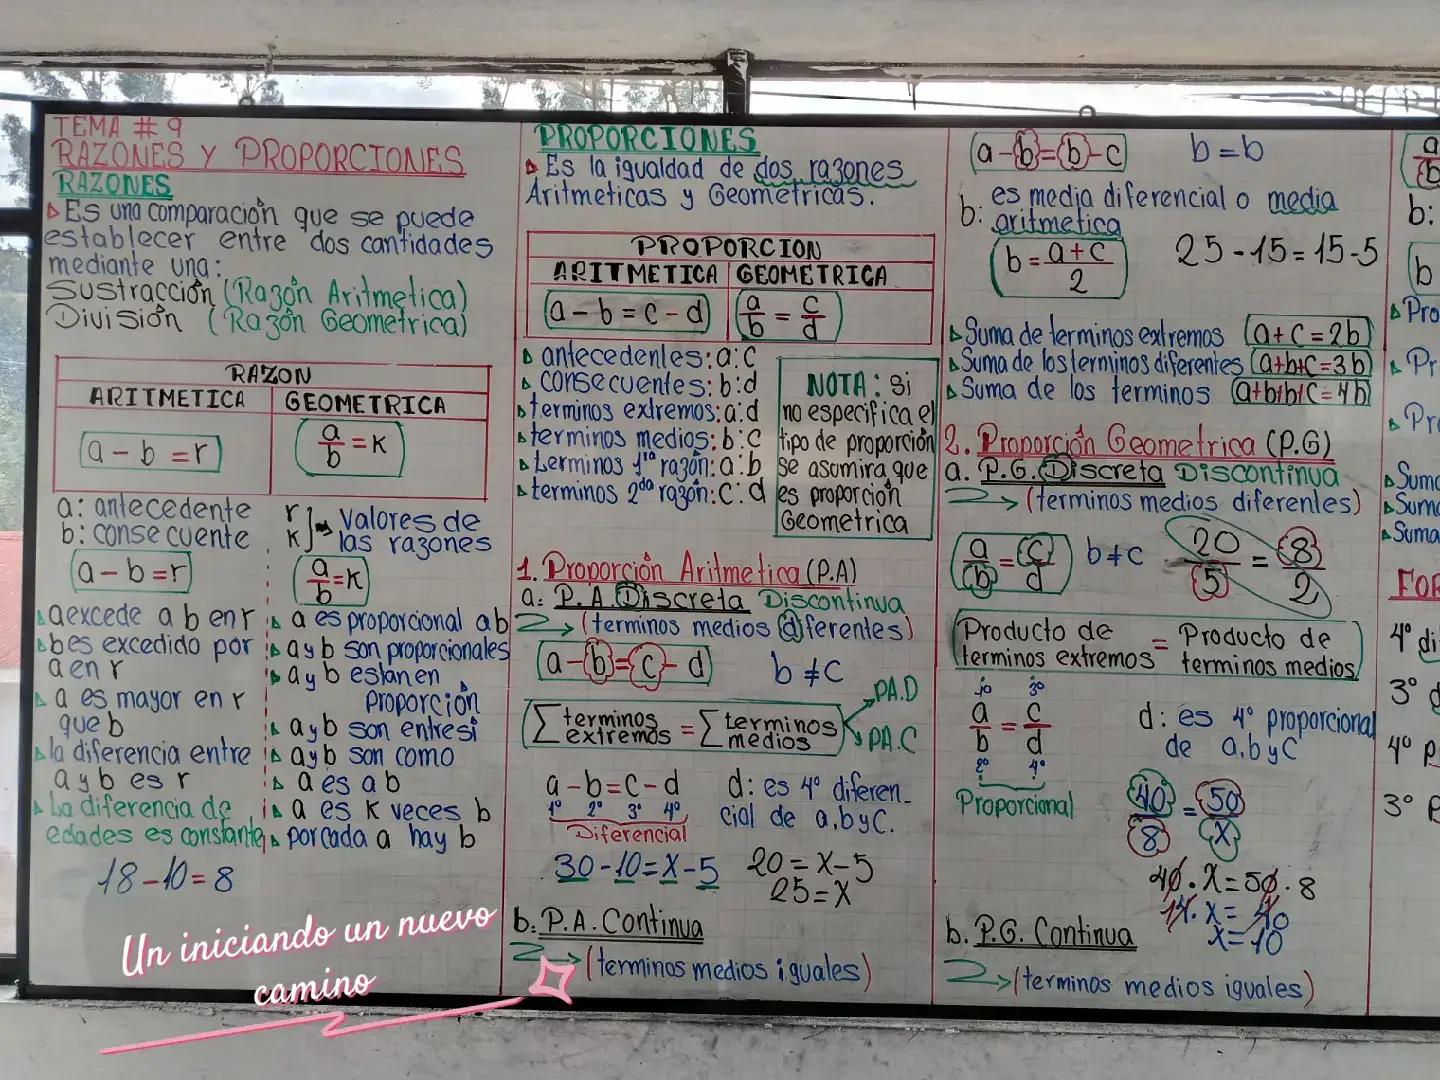 TEMA # 9
RAZONES Y PROPORCIONES
RAZONES
▷ Es una comparación que se puede
establecer entre dos cantidades
mediante una:
Sustracción (Razón Aritmetica)
División (Razón Geometrica)
RAZON
ARITMETICA GEOMETRICA
a - b = r a/b = K
a: antecedente
b: consecuente
r
K ] → Valores de
las razones
a - b = r
a/b = K
▷ a excede a b en r
▷ b es excedido por
a en r
▷ a es mayor en r
que b
▷ la diferencia entre
a y b es r
▷ La diferencia de
edades es constante
18 - 10 = 8
▷ a es proporcional a b
▷ a y b son proporcionales
▷ a y b estan en
proporción
▷ a y b son entresi
▷ a y b son como
▷ a es a b
▷ a es K veces b
▷ por cada a hay b
Un iniciando un nuevo
camino
PROPORCIONES
▷ Es la igualdad de dos razones
Aritmeticas y Geometricas.
PROPORCION
ARITMETICA GEOMETRICA
a - b = c - d a/b = c/d
▷ antecedentes: a:c
▷ consecuentes: b:d
▷ terminos extremos: a:d
▷ terminos medios: b:c
▷ terminos 1ra razón: a:b
▷ terminos 2da razón: c:d
NOTA: Si
no especifica el
tipo de proporción
se asumira que
es proporción
Geometrica
1. Proporción Aritmetica (P.A)
a: P.A. Discreta Discontinua
→ (terminos medios diferentes)
a - b = c - d b ≠ c
∑ terminos extremos = ∑ terminos medios
P.A.D
P.A.C
a - b = c - d
1° 2° 3° 4°
Diferencial
d: es 4° diferen-
cial de a.b y c.
30 - 10 = x - 5 20 = x - 5
25 = x
b: P.A. Continua
→ (terminos medios iguales)
a - b = b - c b = b
b: es media diferencial o media
aritmetica
b = a + c / 2 25 - 15 = 15 - 5
▷ Suma de terminos extremos a + c = 2b
▷ Suma de los terminos diferentes a+b+c = 3b
▷ Suma de los terminos a+b+b+c = 4b
2. Proporción Geometrica (P.G)
a. P.G. Discreta Discontinua
→ (terminos medios diferentes)
a/b = c/d b ≠ c 20/5 = 8/2
Producto de terminos extremos = Producto de terminos medios
1° 3°
a/b = c/d
2° 4°
Proporcional
d: es 4° proporcional
de a.b y c
40/8 = 50/x
40 . x = 50 . 8
x = 10
b. P.G. Continua
→ (terminos medios iguales)
a
b
b:
b
▷ Pro
▷ Pr
▷ Pro
▷ Suma
▷ Suma
▷ Suma
FOR
4° di
3° d
4° P
3° P